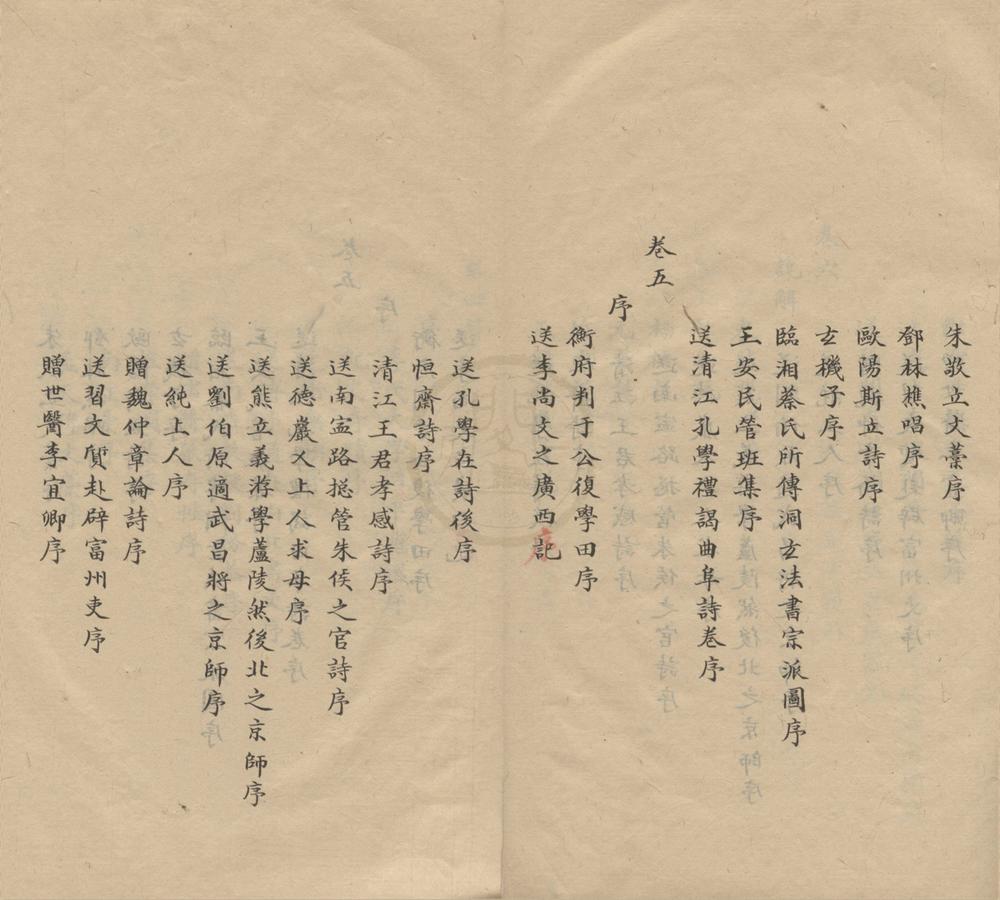 朱敬立文藁序
鄧林樵唱序
歐陽斯立詩序
玄機子序
臨湘蔡氏所傳洞玄法書宗派圖序
王安民管班集序
送清江孔學禮謁曲阜詩卷序
卷五
序
衡府判于公復學田序
送李尚文之廣西記序
送孔學在詩後序
恒齋詩序
清江王君孝感詩序
送南寍路捴管朱侯之官詩序
送德巖乂上人求母序
送熊立義游學蘆陵然後北之京師序
送劉伯原適武昌將之京師序
送純上人序
贈魏仲章論詩序
送習文質赴辟富州吏序
贈世醫李宜卿序